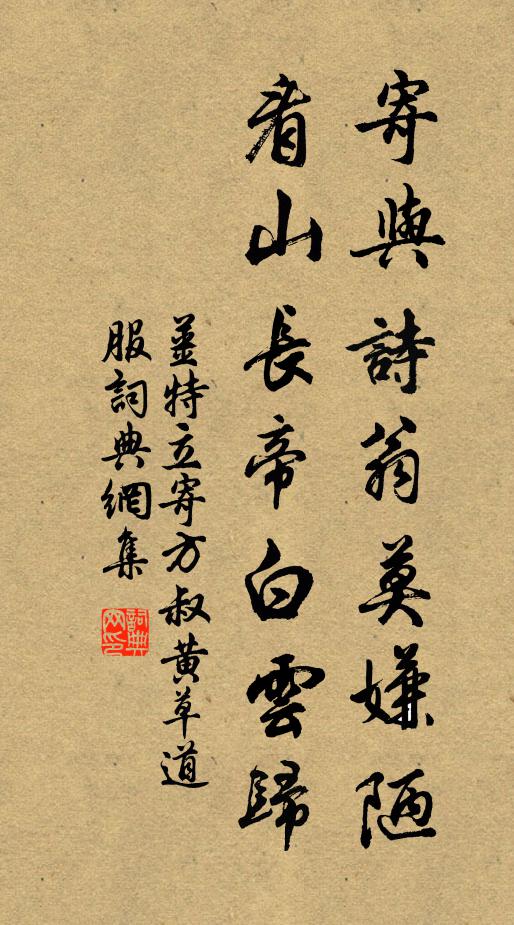 寄與詩翁莫嫌陋
看山長帝白雲歸
薑特立寄方叔黃草道
服詞典網集
詞典网印